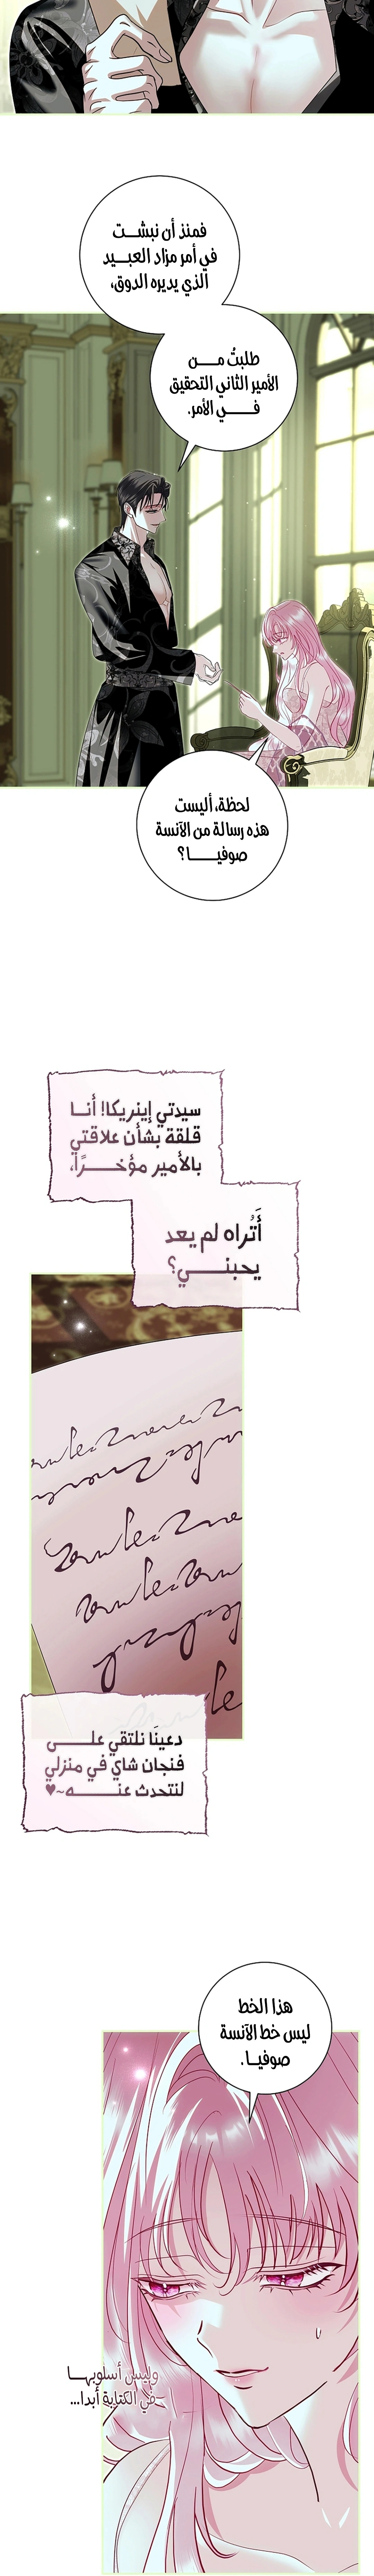 فمنذ أن نبشت
في أمر مزاد العبيد
الذي يديره الدوق،
طلبتُ من
الأمير الثاني التحقيق
في الأمر.
لحظة، أليست
هذه رسالة من الآنسة
صوفيا؟
سيدتي إينريكا! أنا
قلقة بشأن علاقتي
بالأمير مؤخرًا،
أَتُراه لم يعد
يحبني؟
دعينَا نلتقي على
فنجان شاي في منزلي
لنتحدث عنه~♥
هذا الخط
ليس خط الآنسة
صوفيا.
وليس أسلوبها
في الكتابة أبدا...